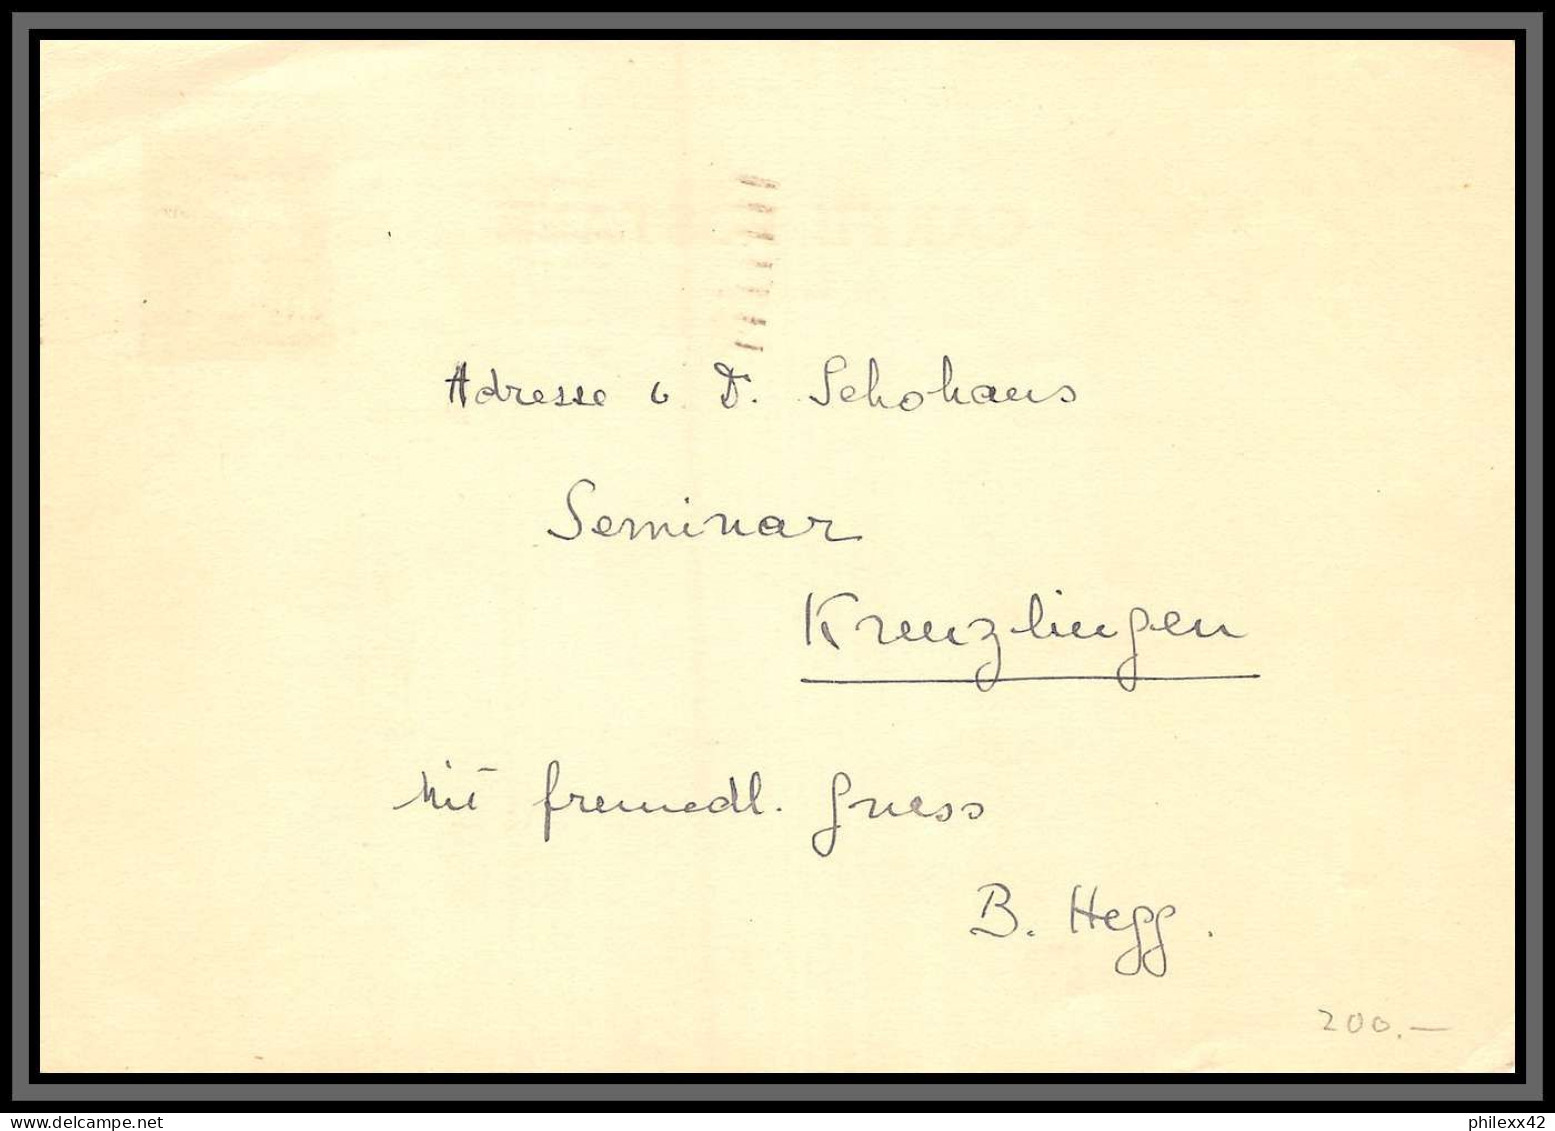 Adresse Dr. Schohaus
Seminar
Kreuzlingen
Mit freundl. Gruss
B. Hegg.
200.—
philexx42